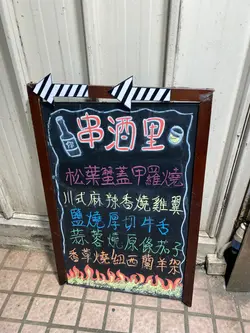 串酒里
松葉蟹蓋甲羅燒
川式麻辣香燒雞翼
鹽燒厚切牛舌
蒜蓉燒原條茄子
香草燒紐西蘭羊架